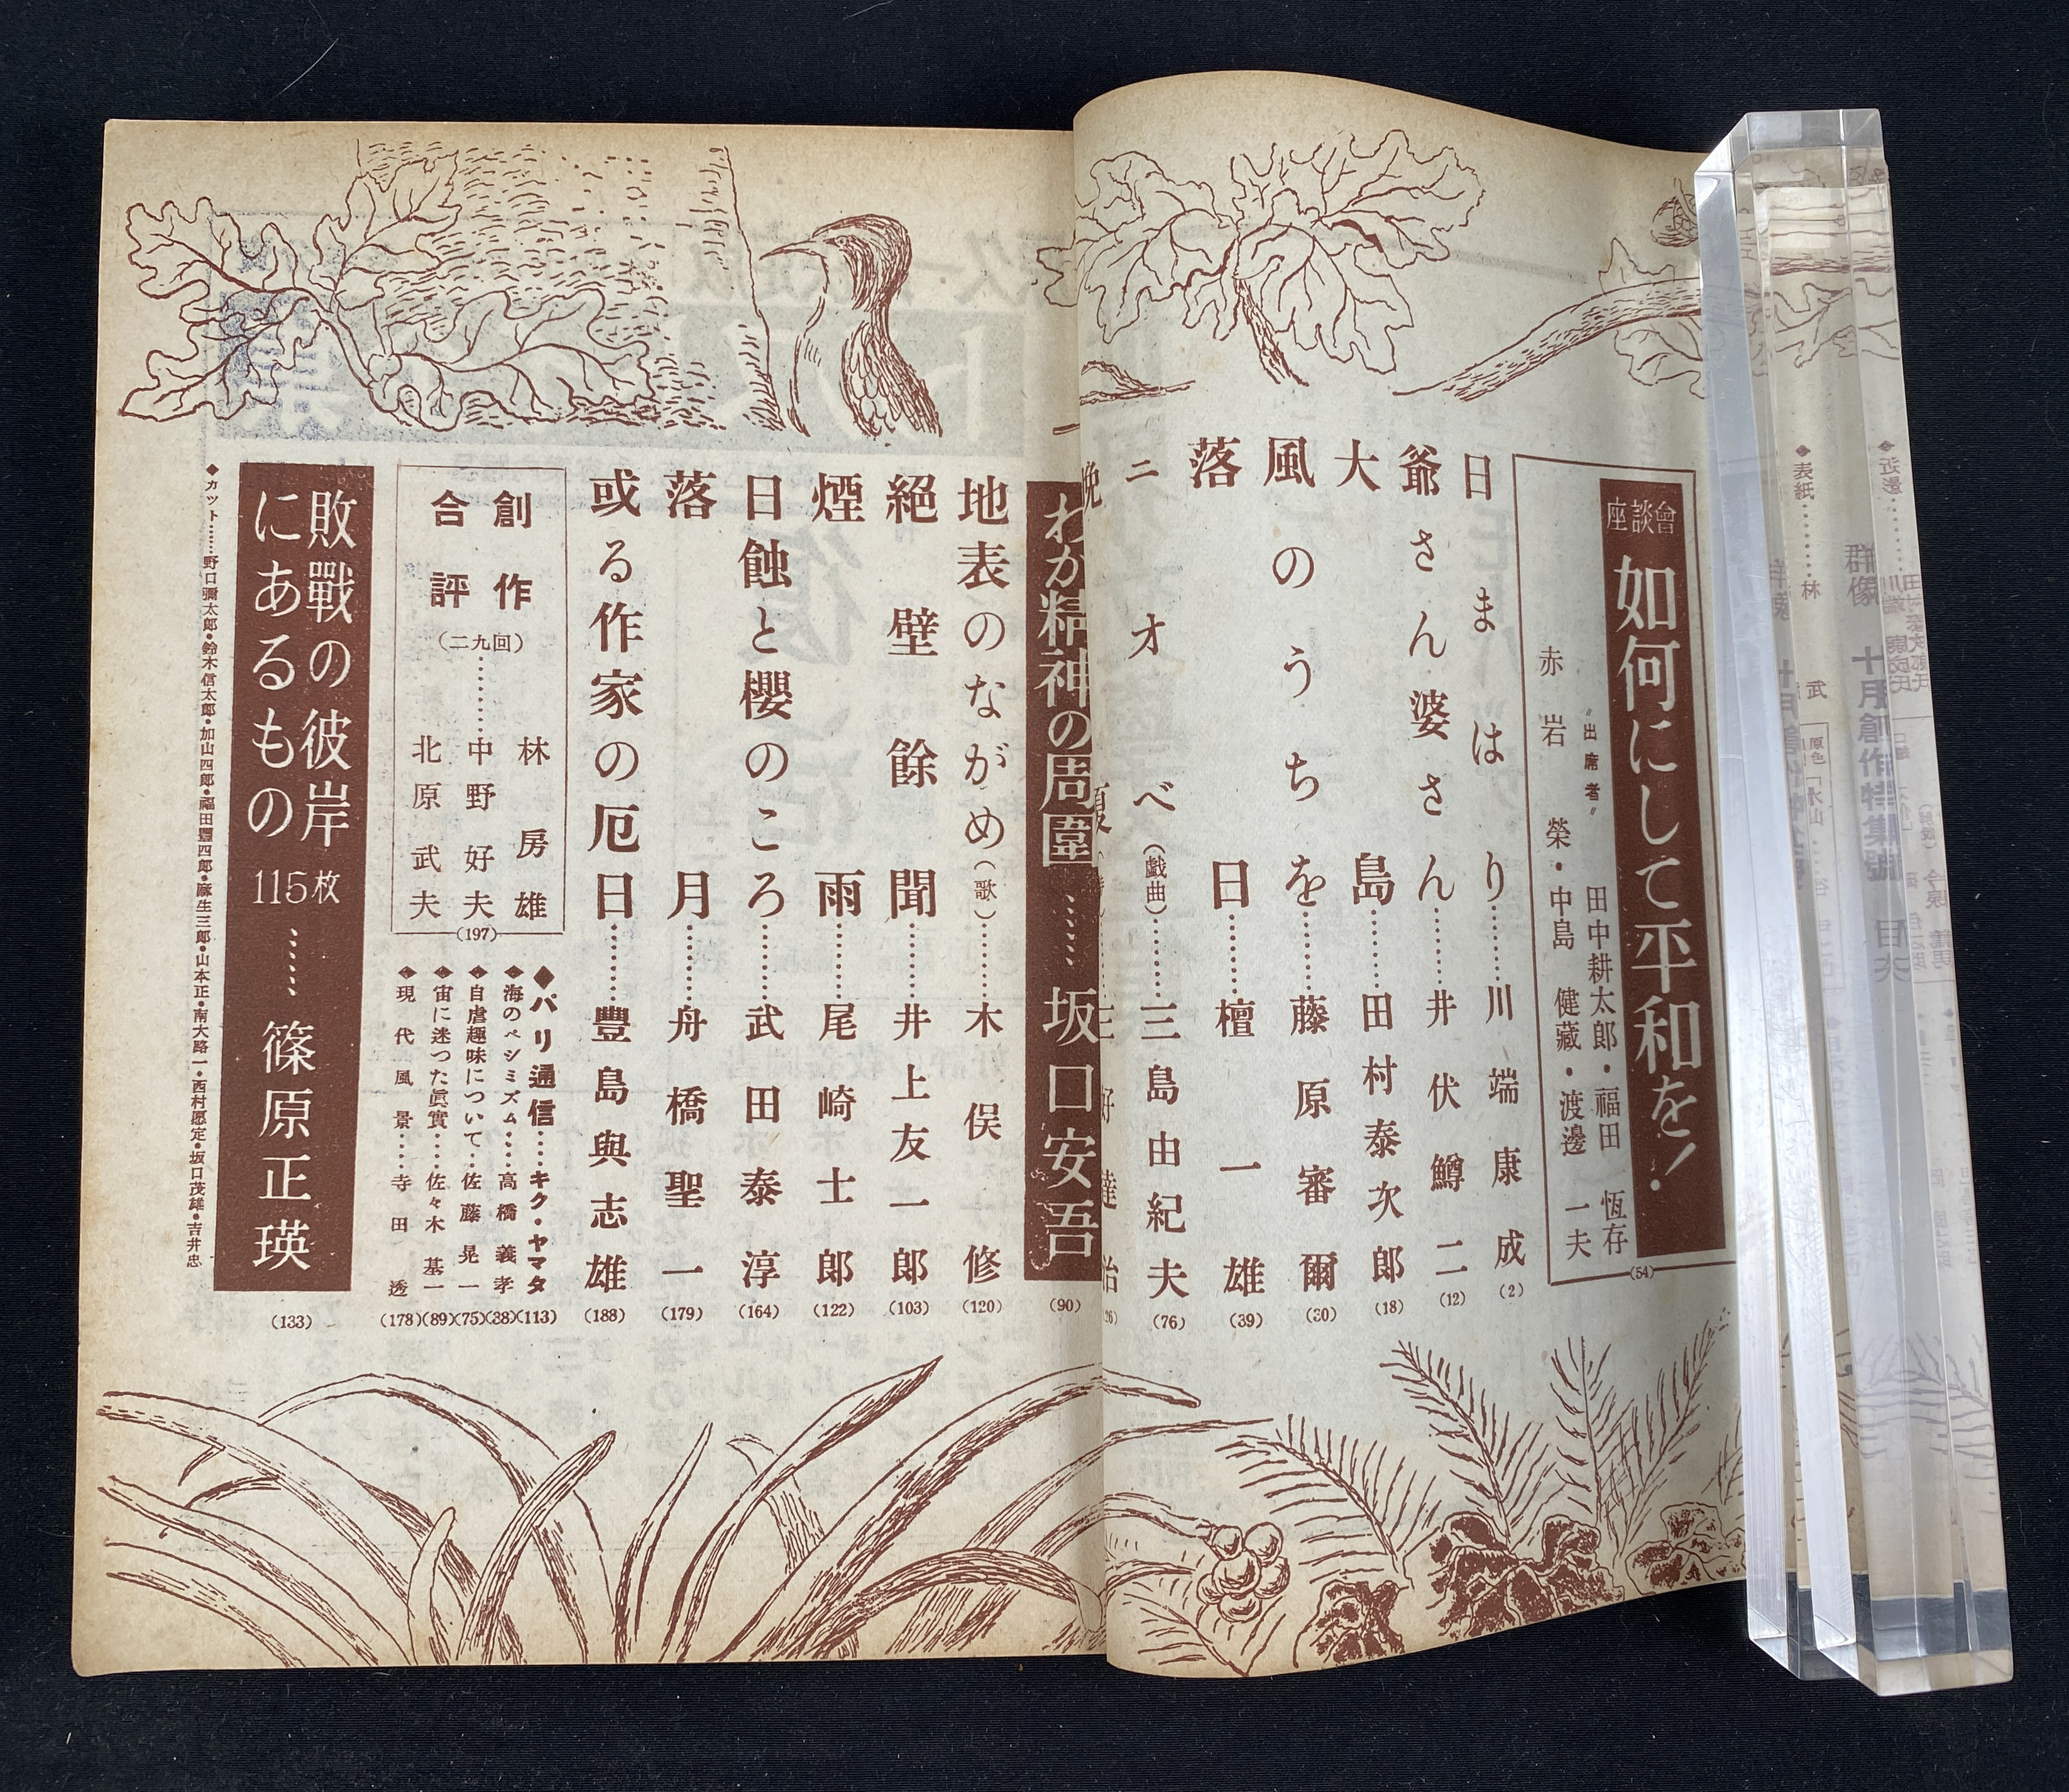 群像 十月創作特集號 目次
表紙………林 武
座談會 如何にして平和を!
〝出席者〟
田中耕太郎・福田 恆存
赤岩 榮・中島 健藏・渡邊 一夫
(54)
日まはり………川端康成(2)
爺さん婆さん………井伏鱒二(12)
大島………田村泰次郎(18)
風のうちを………藤原審爾(30)
落日………檀一雄(39)
ニオベ(戯曲)………三島由紀夫(76)
わが精神の周圍……坂口安吾(90)
地表のながめ(歌)………木俣修(120)
絕壁餘聞………井上友一郎(103)
煙雨………尾崎士郎(122)
日蝕と櫻のころ………武田泰淳(164)
落月………舟橋聖一(179)
或る作家の厄日………豐島與志雄(188)
創作合評(二九回)………
林房雄
中野好夫
北原武夫
(197)
◆パリ通信……キク・ヤマタ(113)
◆海のペシミズム……高橋義孝(38)
◆自虐趣味について…佐藤晃一(75)
◆宙に迷つた眞實……佐々木基一(89)
◆現代風景……寺田透(178)
敗戰の彼岸にあるもの 115枚……篠原正瑛(133)
◆カット……野口彌太郎・鈴木信太郎・加山四郎・福田豐四郎・麻生三郎・山本正・南大路一・西村愿定・坂口茂雄・吉井忠